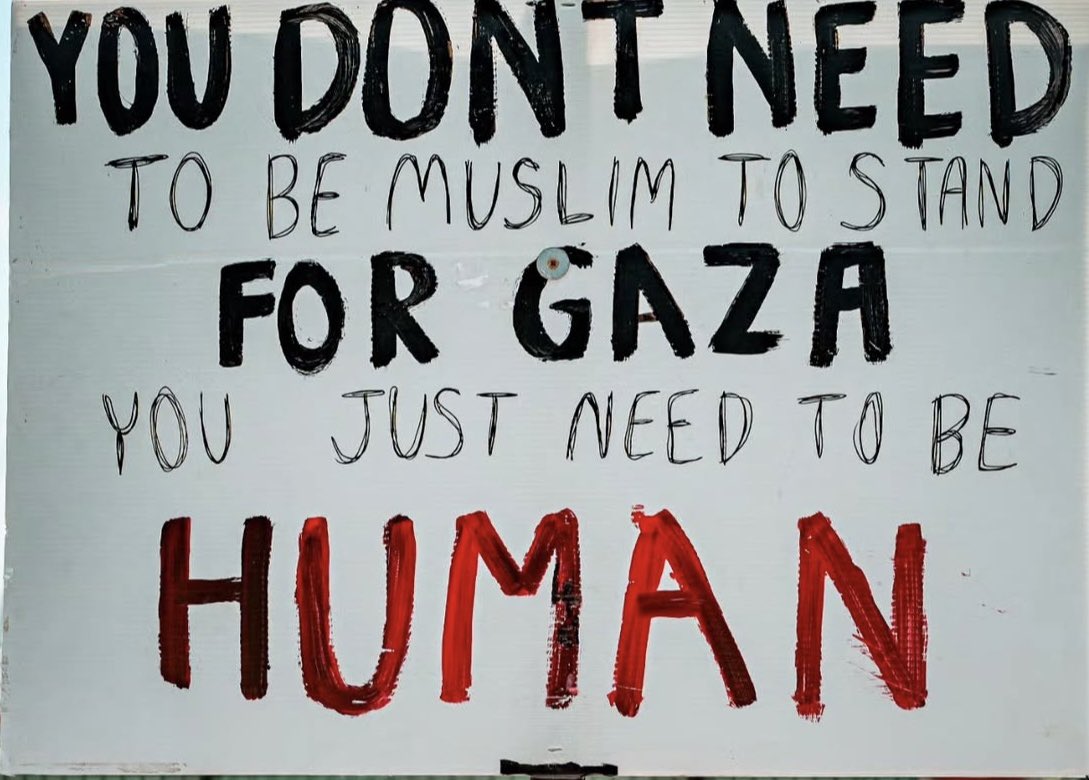 YOU DON'T NEED
TO BE MUSLIM TO STAND
FOR GAZA
YOU JUST NEED TO BE
HUMAN